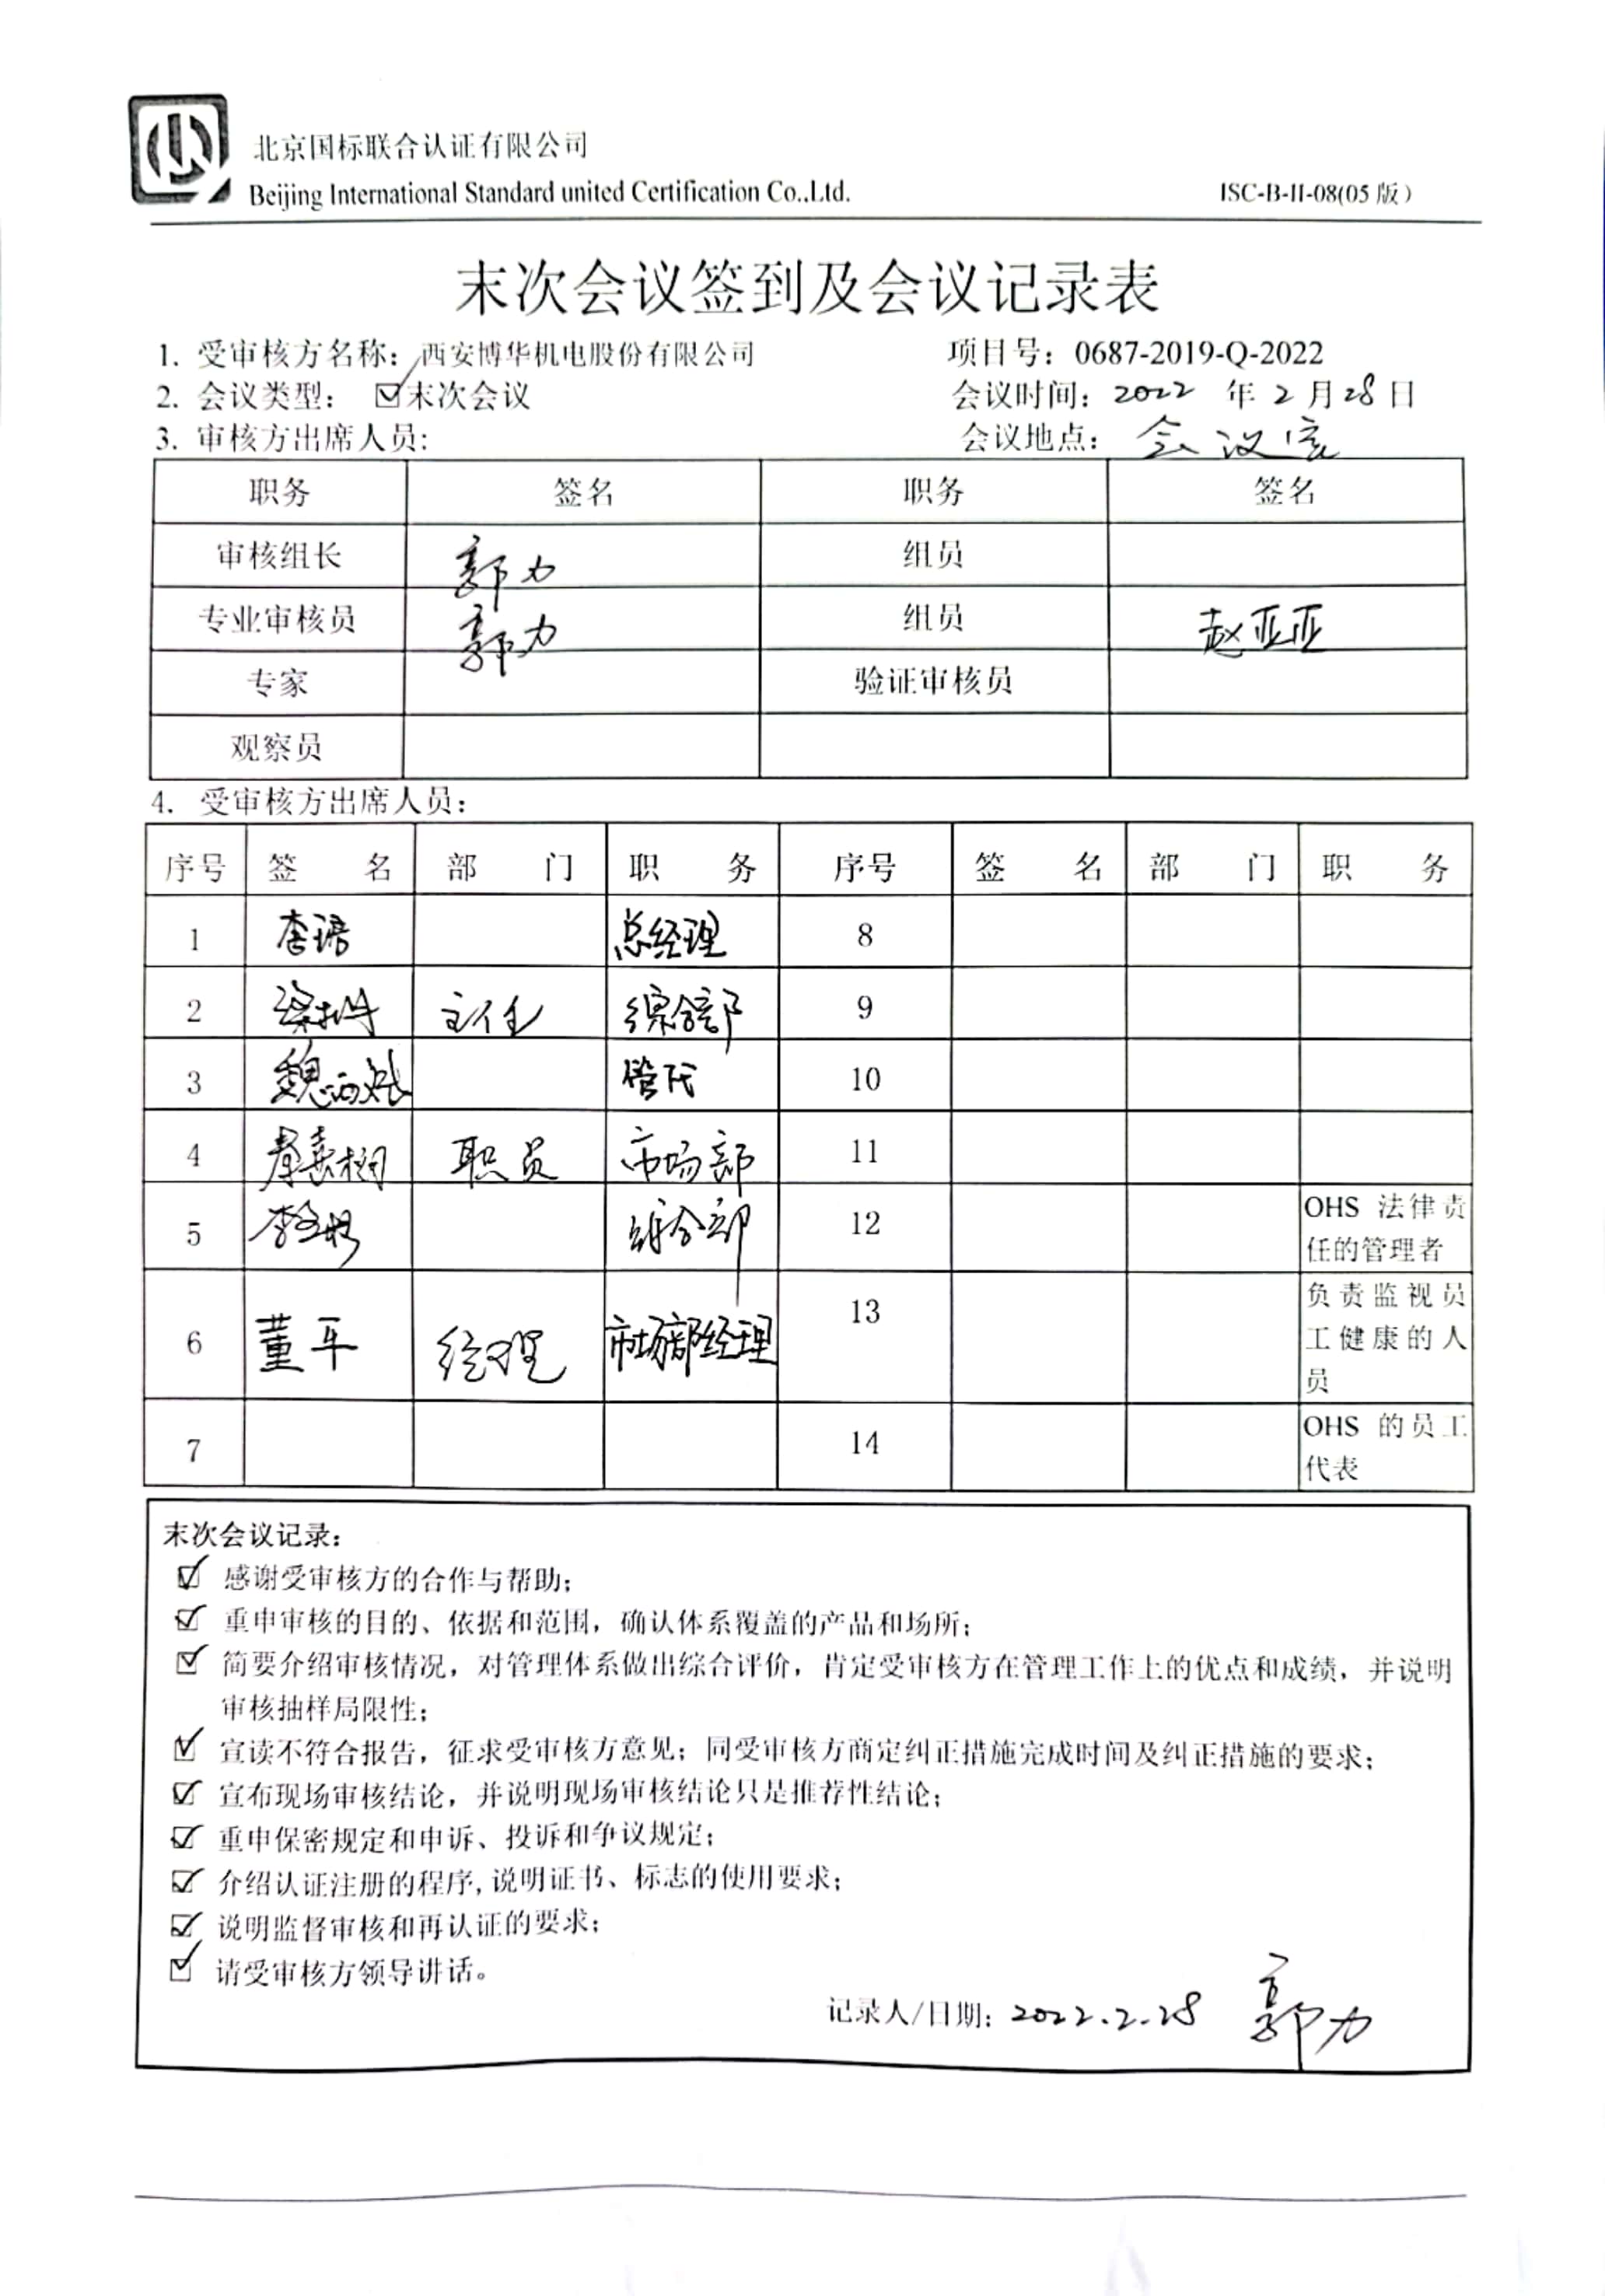 北京国标联合认证有限公司
Beijing International Standard united Certification Co.,Ltd. ISC-B-II-08(05 版)
末次会议签到及会议记录表
1. 受审核方名称: 西安博华机电股份有限公司 项目号: 0687-2019-Q-2022
2. 会议类型: ☑末次会议 会议时间: 2022 年 2 月 28 日
3. 审核方出席人员: 会议地点: 会议室
职务 签名 职务 签名
审核组长 郭力 组员
专业审核员 郭力 组员 赵亚亚
专家 验证审核员
观察员
4. 受审核方出席人员:
序号 签 名 部 门 职 务 序号 签 名 部 门 职 务
1 总经理 8
2 主任 综合部 9
3 管代 10
4 职员 市场部 11
5 综合部 12 OHS 法律责
任的管理者
6 董平 经理 市场部经理 13 负责监视员
工健康的人
员
7 14 OHS 的员工
代表
末次会议记录:
☑ 感谢受审核方的合作与帮助;
☑ 重申审核的目的、依据和范围，确认体系覆盖的产品和场所;
☑ 简要介绍审核情况，对管理体系做出综合评价，肯定受审核方在管理工作上的优点和成绩，并说明
审核抽样局限性;
☑ 宣读不符合报告，征求受审核方意见；同受审核方商定纠正措施完成时间及纠正措施的要求;
☑ 宣布现场审核结论，并说明现场审核结论只是推荐性结论;
☑ 重申保密规定和申诉、投诉和争议规定;
☑ 介绍认证注册的程序,说明证书、标志的使用要求;
☑ 说明监督审核和再认证的要求;
☑ 请受审核方领导讲话。
记录人/日期: 2022.2.28 郭力